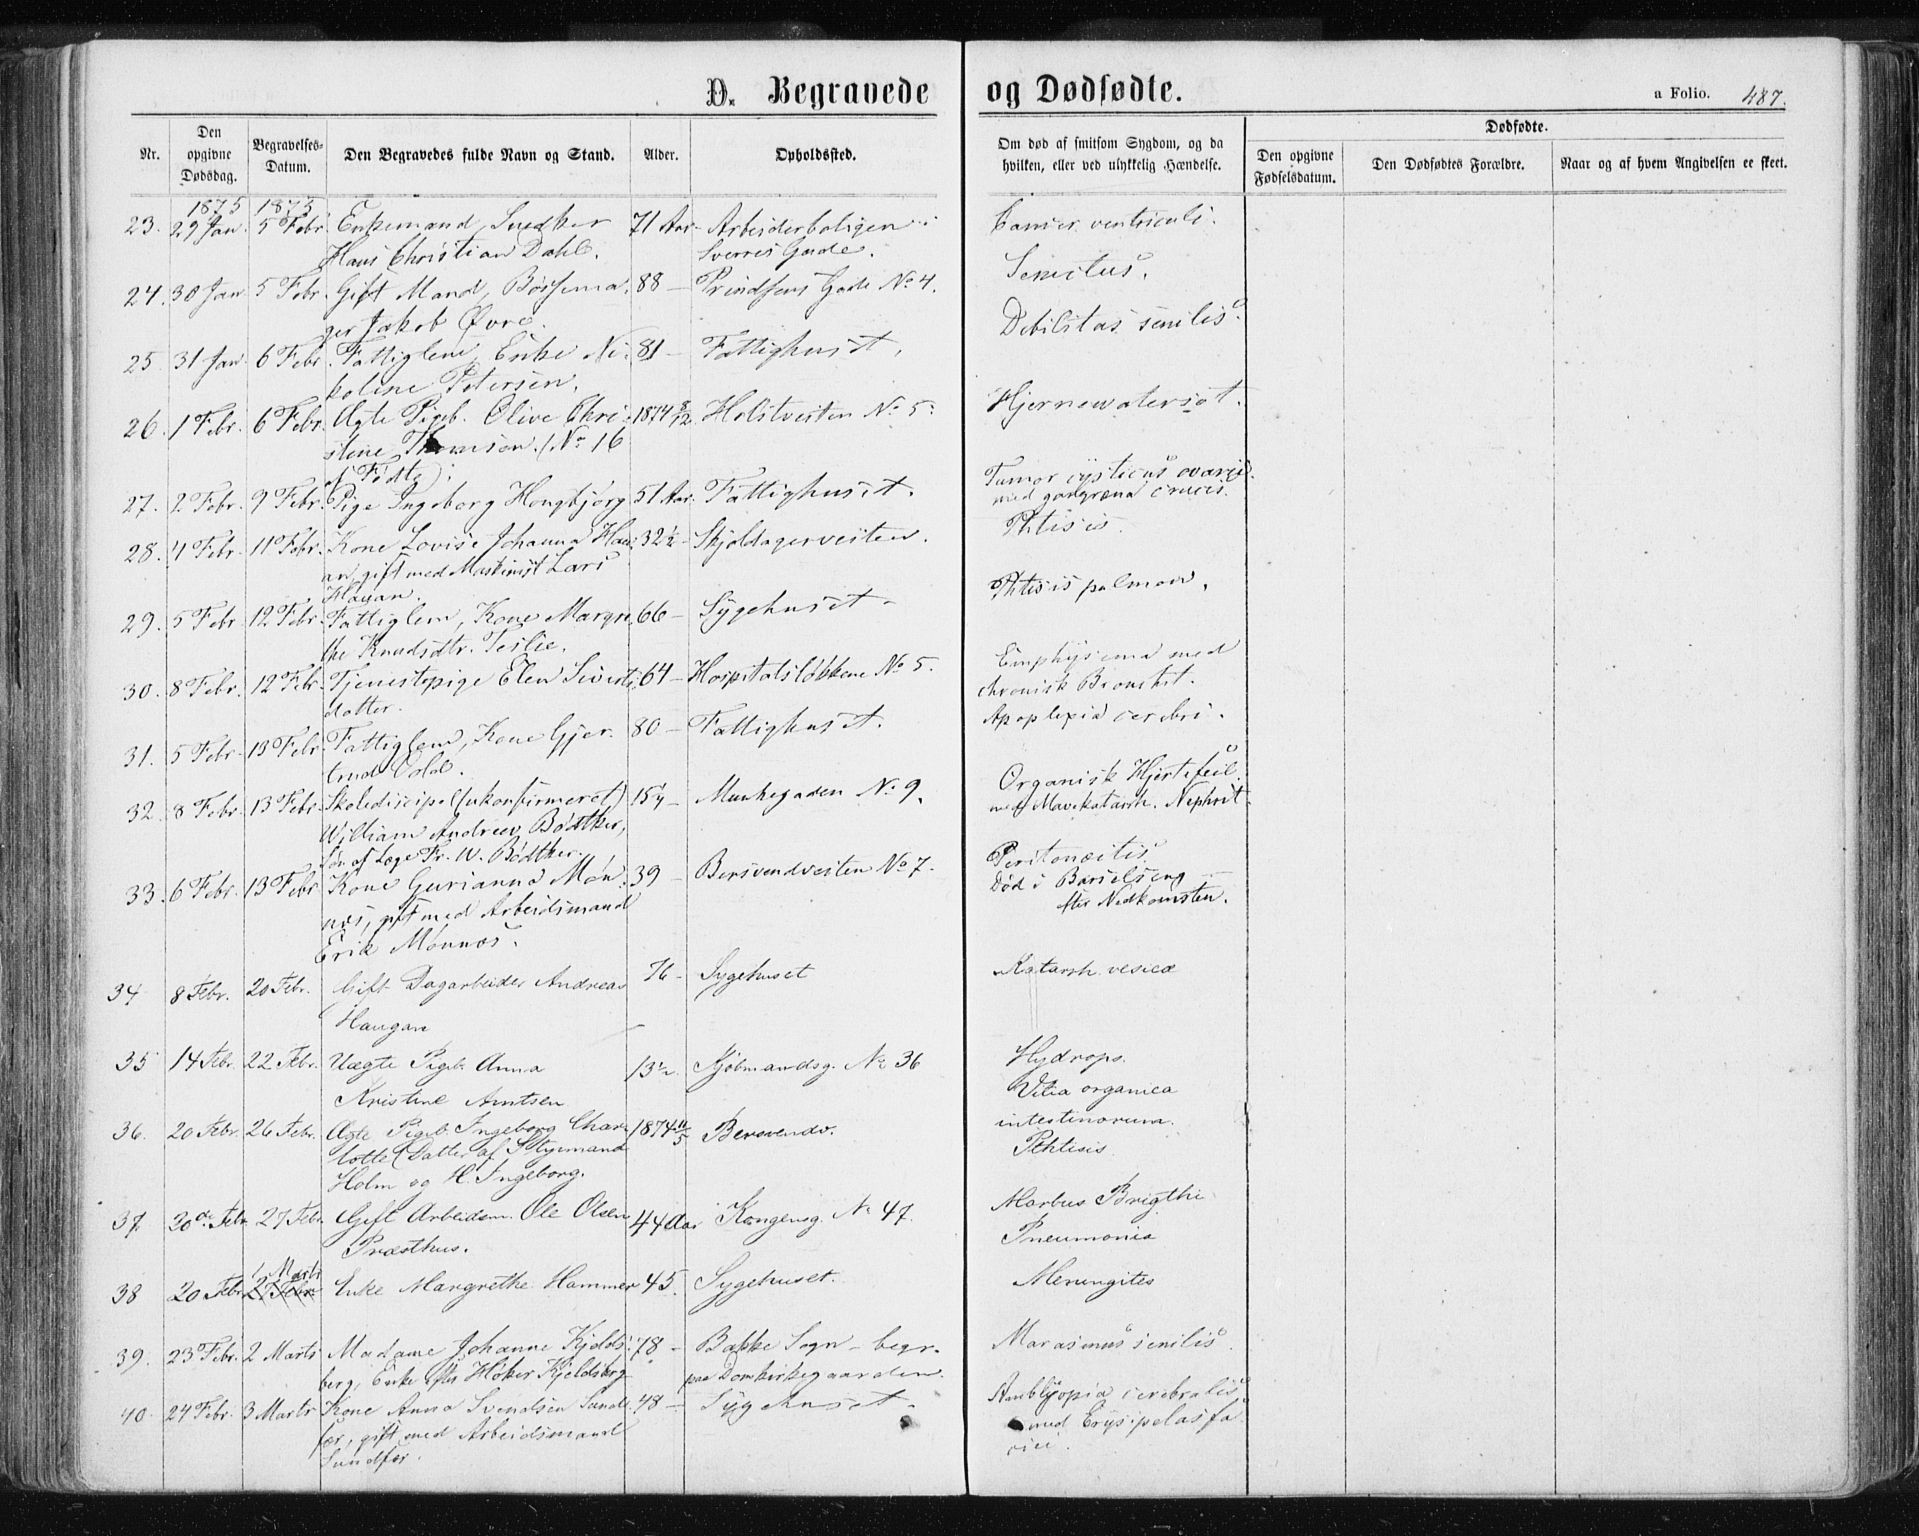 D. Begravede og Dødfødte.
a Folio. 487.
Nr.
Den opgivne Dødsdag.
Begravelses-Datum.
Den Begravedes fulde Navn og Stand.
Alder.
Opholdssted.
Om død af smitsom Sygdom, og da hvilken, eller ved ulykkelig Hændelse.
Dødfødte.
Den opgivne Fødselsdatum.
Den Dødfødtes Forældre.
Naar og af hvem Angivelsen er skeet.
1875 1875
23. 29 Jan. 5 Febr. Enkemand Snedker 71 Aar Arbeiderboligen i Cancer ventriculi.
Hans Christian Dahl. Sverres Gade.
24. 30 Jan 5 Febr. Gift Mand, Bøssema 88 — Prindsens Gade No 4. Senectus.
ger Jakob Øvre.
25. 31 Jan 6 Febr. Fattiglem, Enke Ni 81 — Fattighuset. Debilitas senilis.
koline Petersen.
26. 1 Febr. 6 Febr. Ægte Pigeb. Olive Chri 1874 8/12 Holstveiten No 5. Hjernewatersot.
stine Thomson. (No 16
af Fødte)
27. 2 Febr. 9 Febr. Pige Ingeborg Hongbjørg 51 Aar. Fattighuset. Tumor cysticus ovarii
med gangræna cruris.
28. 4 Febr. 11 Febr. Kone Lovise Johanna Hau 32½ — Skjoldagerveiten. Phtisis.
an, gift med Maskinist Lars
Hauan.
29. 5 Febr. 12 Febr. Fattiglem, Kone Margre 66 — Sygehuset — Phtisis pulmon.
the Knudsdtr. Teslie.
30. 8 Febr. 12 Febr. Tjenestepige Elen Siverts 64 — Hospitalsløkkene No 5. Emphysema med
datter. chronisk Bronchit.
31. 5 Febr. 13 Febr. Fattiglem, Kone Gjer 80 — Fattighuset. Apoplexia cerebri.
trud Vold.
32. 8 Febr. 13 Febr. Skoledicipel (ukonfirmeret) 15¼ — Munkegaden No 9. Organisk Hjertefeil
William Andreas Bødtker, med Mavekatarrh. Nephrit.
Søn af Læge Fr. W. Bødtker.
33. 6 Febr. 13 Febr. Kone Gurianna Møn 39 — Bersvendveiten No 7. Peritonæitis
næs, gift med Arbeidsmand Død i Barselseng
Erik Mønnæs. efter Nedkomsten.
34 8 Febr. 20 Febr. Gift Dagarbeider Andreas 76 — Sygehuset Katarrh. vesicæ
Haugan
35 14 Febr. 22 Febr. Uægte Pigeb. Anna 13½ Kjøbmandsg. No 36 Hydrops.
Kristine Arntsen Vitia organica
intestinorum.
36. 20 Febr. 26 Febr. Ægte Pigeb. Ingeborg Char 1874 11/5 Bersvendv. Phtisis
lotte (Datter af Styrmand
Holm og H. Ingeborg.
37. 20de Febr. 27 Febr. Gift Arbeidsm. Ole Olsen 44 Aar Kongensg. No 47. Morbus Brigthi
Præsthus. Pneumonia
1 Marts
38 20 Febr. 27 Febr. Enke Margrethe Hammer 45. Sygehuset. Meningites
39. 23 Febr. 2 Marts Madame Johanne Kjelds 78 — Bakke Sogn — begr. Marasmus senilis
berg, Enke efter Høker Kjeldsberg paa Domkirkegaarden.
40. 24 Febr. 3 Marts Kone Anna Svendsen Sund 48 — Sygehuset. Amblyopia cerebralis
før, gift med Arbeidsmand med Erysipelas fa
Sundfør. ciei.